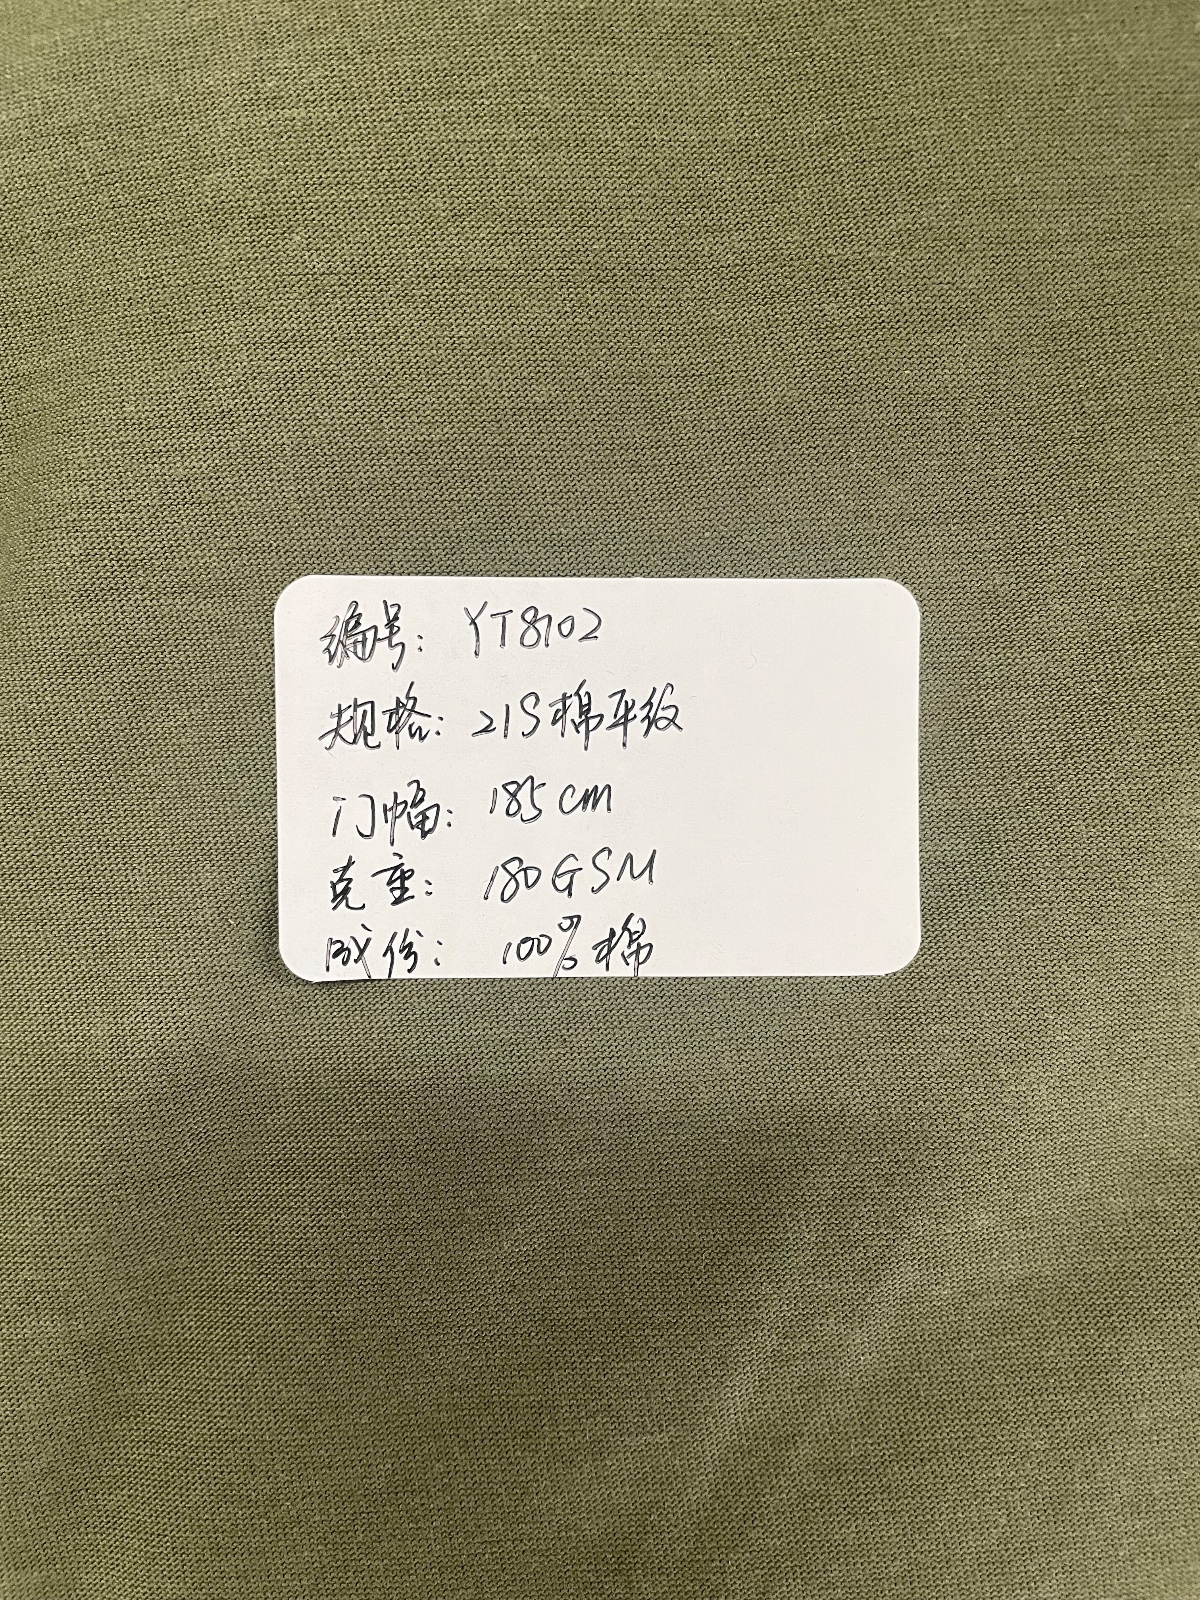 编号: YT8102
规格: 21S棉平纹
门幅: 185cm
克重: 180GSM
成份: 100%棉